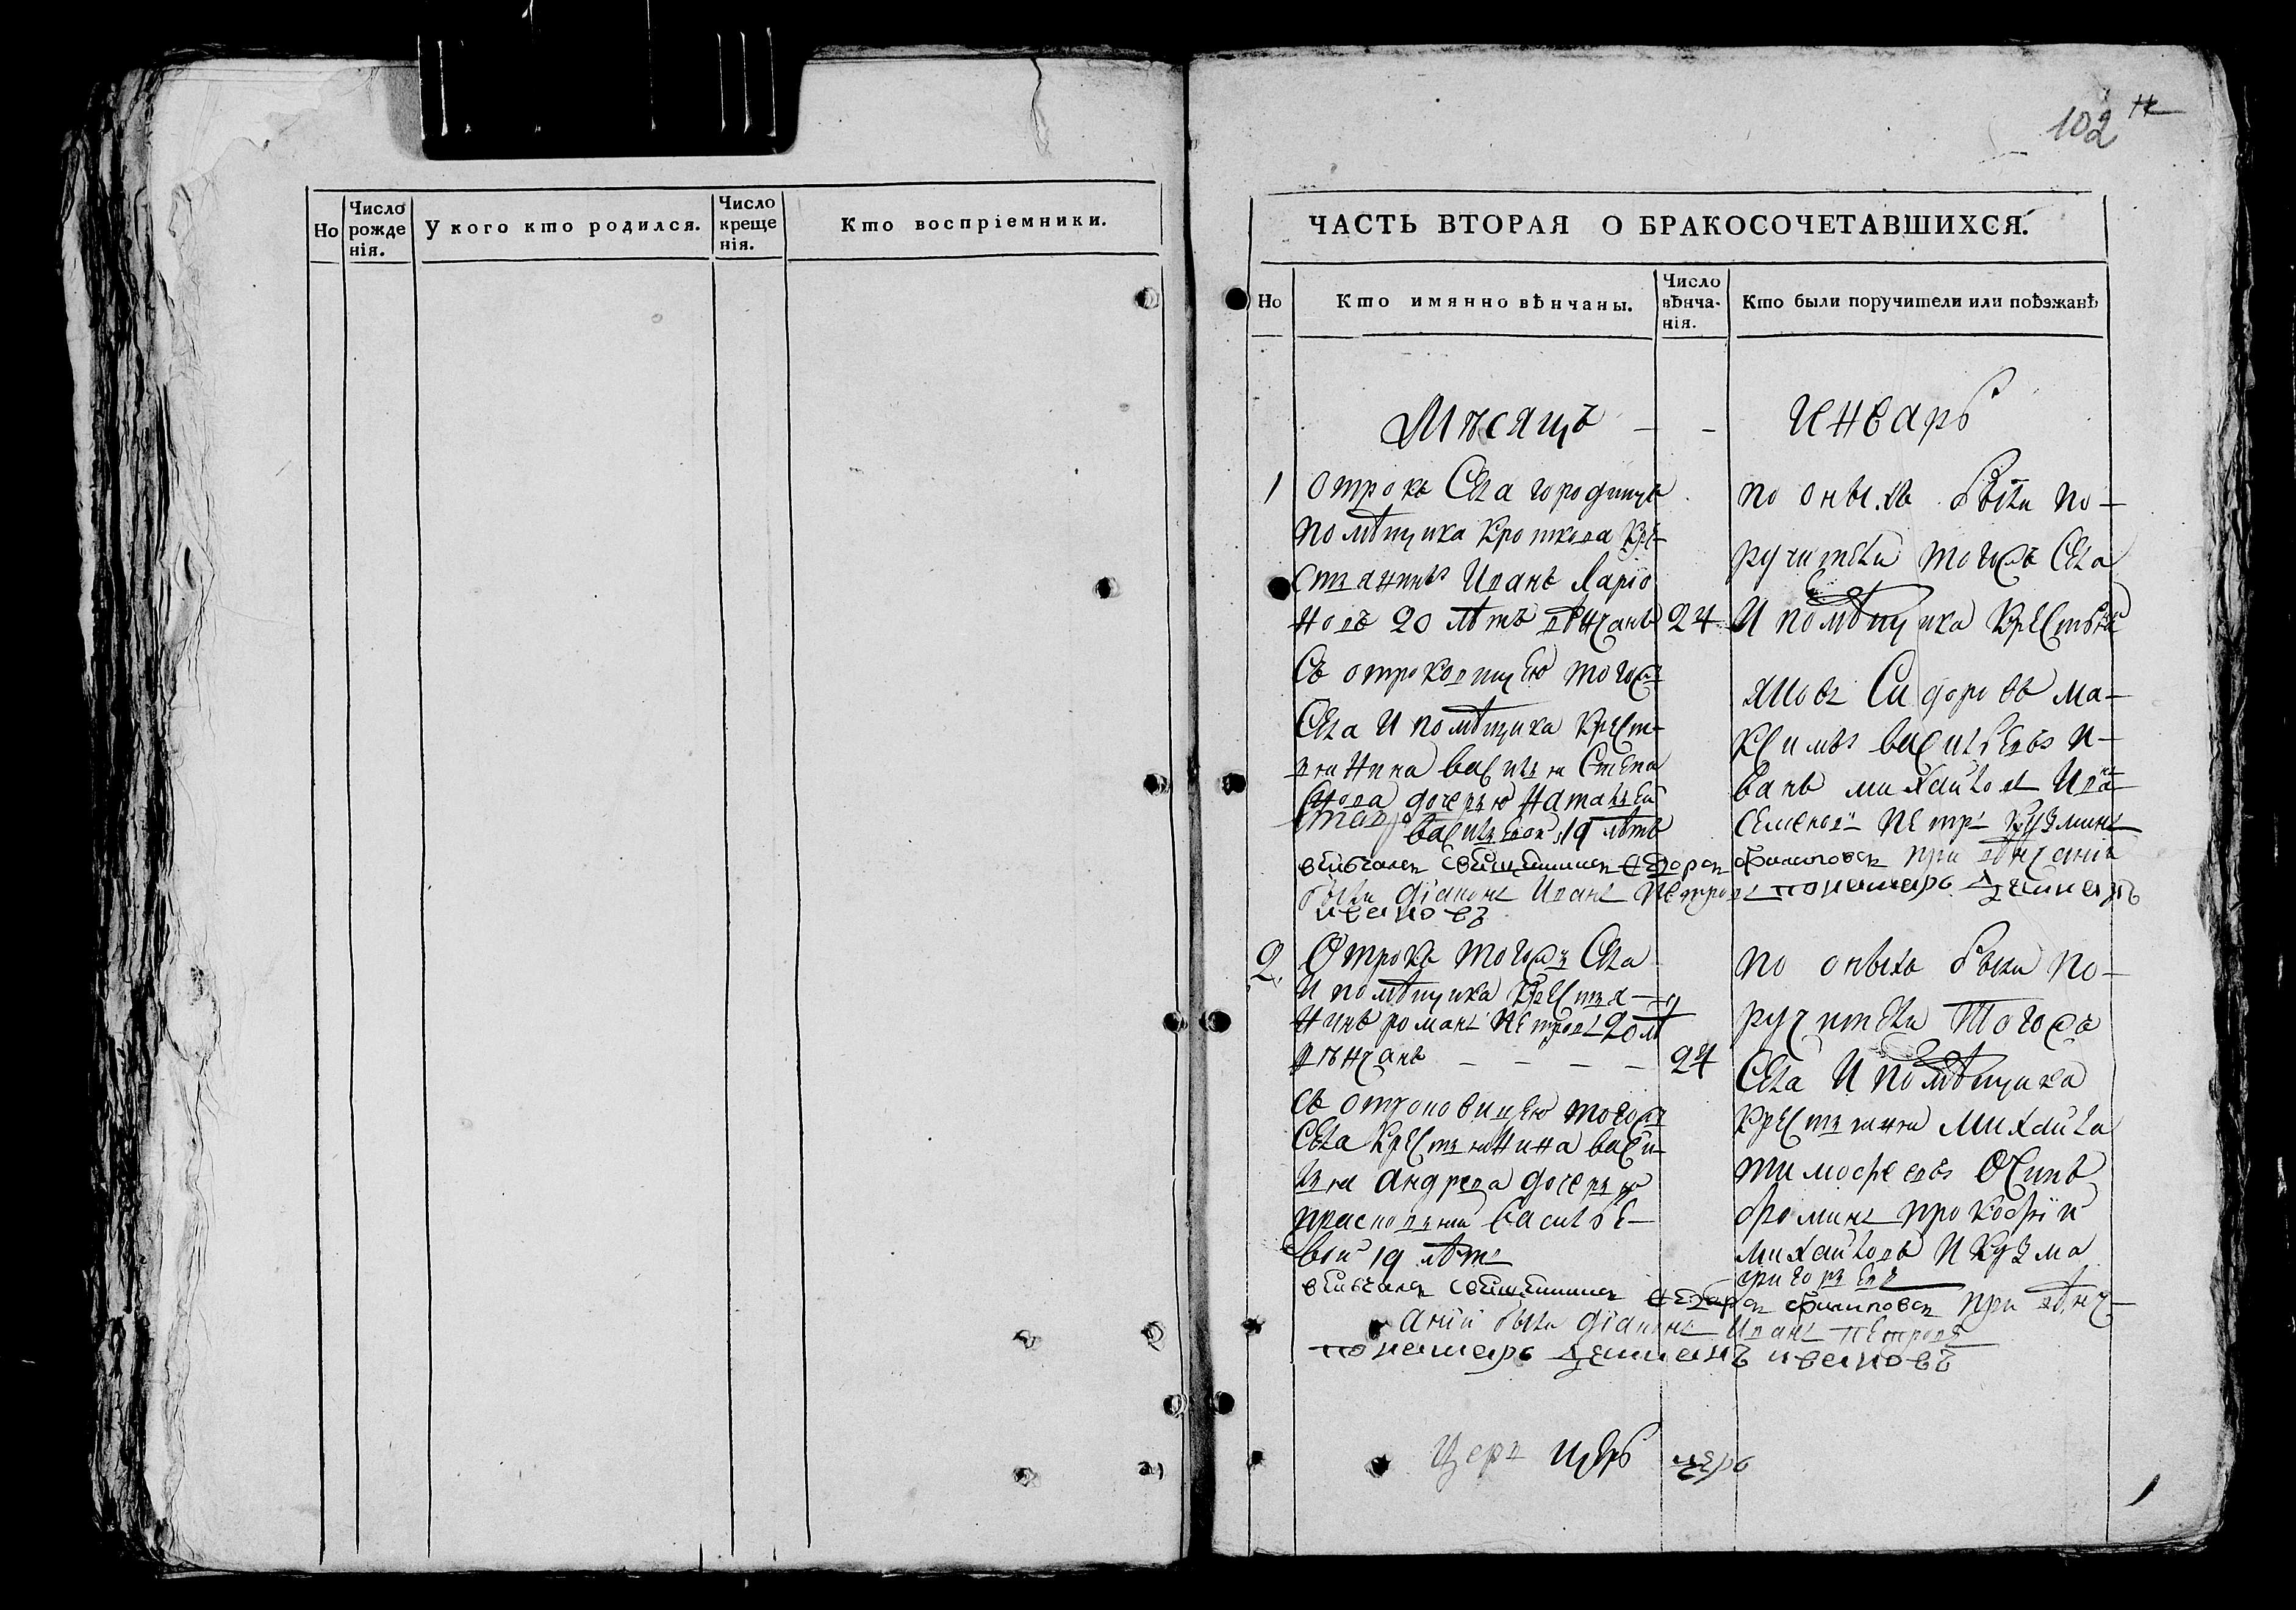 Но
Число рожденія.
У кого кто родился.
Число крещенія.
Кто воспріемники.
102
ЧАСТЬ ВТОРАЯ О БРАКОСОЧЕТАВШИХСЯ.
Но
Кто имянно вѣнчаны.
Число вѣнча-нія.
Кто были поручители или поѣзжанѣ
Мѣсяцъ — — Генварь
1 Отрокъ Села городищъ
помѣщика Кроткова Кре-
стьянинъ Иванъ Ларіо
новъ 20 лѣтъ вѣнчанъ 24
Съ отроковицею тогожъ
Села и помѣщика Крест-
янина Василья Степа
нова дочерью Натальей
Васильевой 19 лѣтъ
вѣнчалъ священникъ Ѳедоръ Филиповъ при вѣнчаніи
были діаконъ Иванъ Петровъ пономарь Демианъ
ивановъ
по оныхъ были по-
ручители тогожъ Села
и помѣщика Крестьяня
Сидоровъ Ма-
ксимъ Васильевъ И-
ванъ Михайловъ Иванъ
Семеновъ Петръ Кузминъ
2 Отрокъ тогожъ Села
и помѣщика Крестья-
нинъ романъ Петровъ 20 лѣ
вѣнчанъ — — — — 24
съ отроковицею тогожъ
Села Крестьянина Васи-
лья Андреева дочерью
прасковьей Василье-
вой 19 лѣтъ
вѣнчалъ священникъ Ѳедоръ Филиповъ при вѣнч-
аніи были діаконъ Иванъ Петровъ
пономарь Демианъ ивановъ
по оныхъ были по-
ручители тогожъ
Села и помѣщика
Крестьяня Михайла
Тимофеевъ Осипъ
Фоминъ Прокофій
Михайловъ и Кузма
григорьевъ